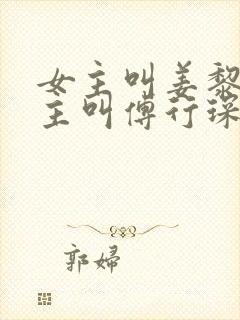 女主叫姜黎
主叫傅行琛
郭婦